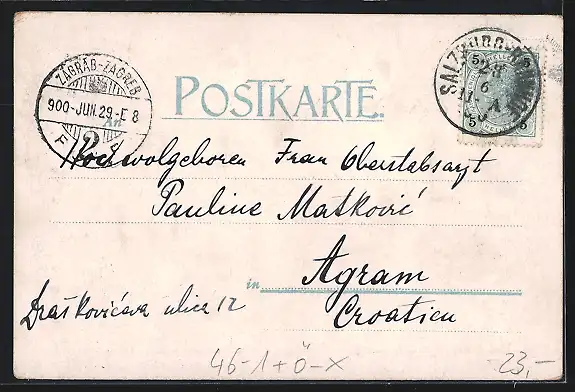 ZÁGRÁB-ZAGREB
900-JUN.29-E 8
POSTKARTE.
SALZBURG
28
6
5
5
5
5
An
Hochwolgeboren Frau Oberstabsarzt
Pauline Matković
in Agram
Draškovićeva ulica 12
Croatien
46-1+Ö-X
23,-